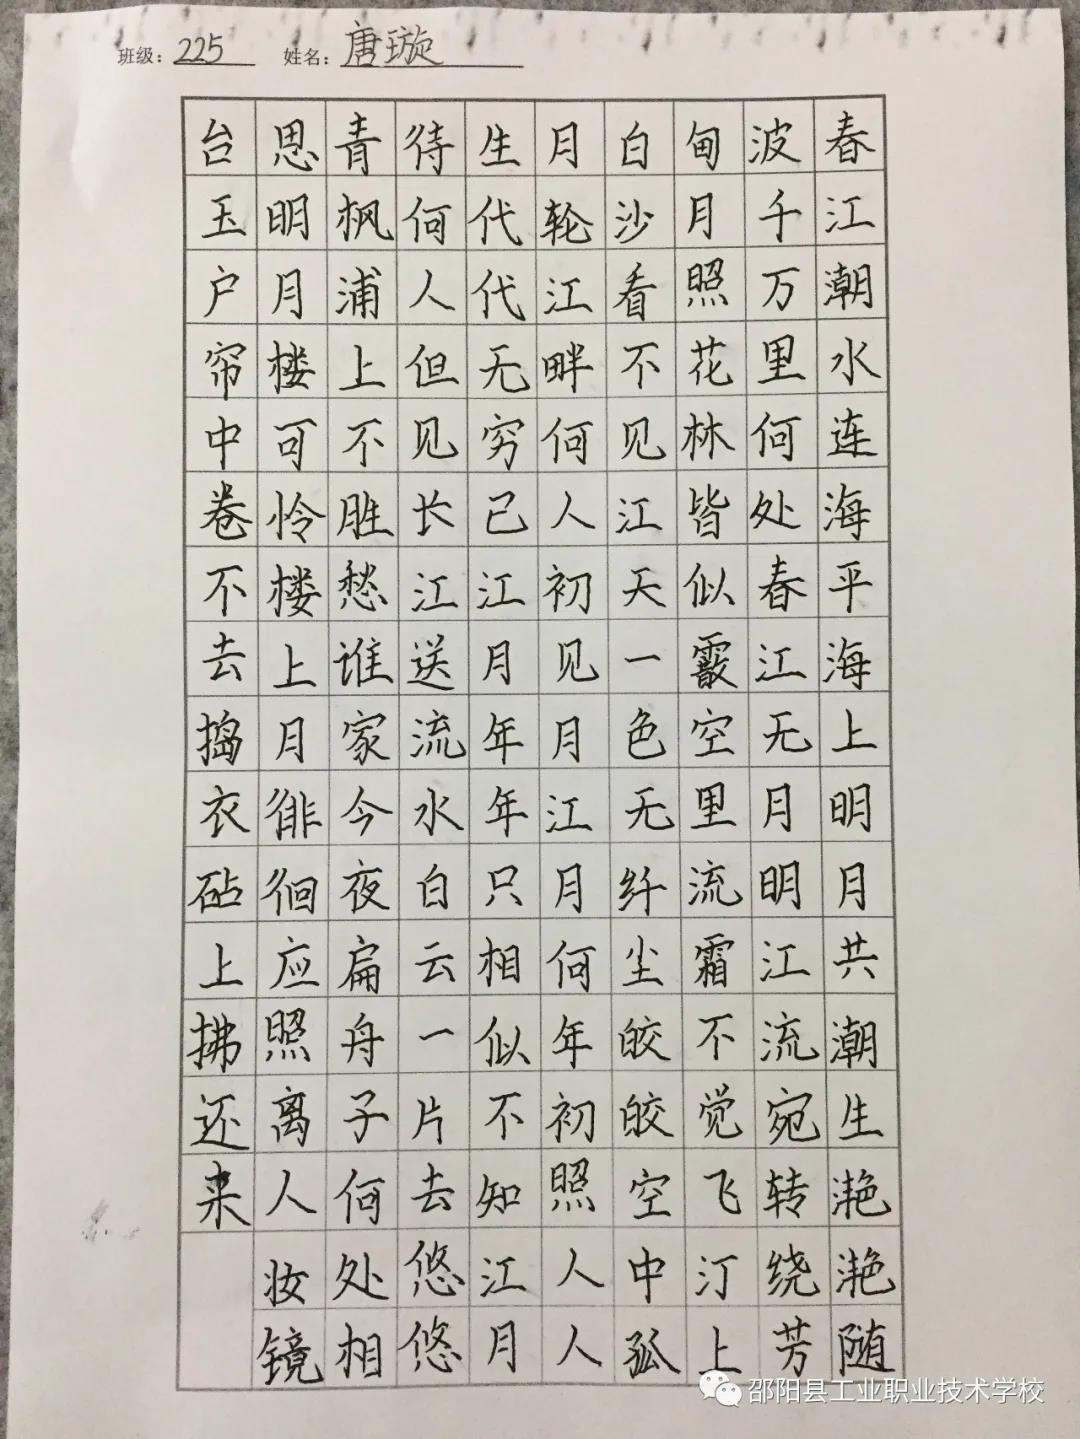 班级：225 姓名：唐璇
春江潮水连海平海上明月共潮生滟滟随
波千万里何处春江无月明江流宛转绕芳
甸月照花林皆似霰空里流霜不觉飞汀上
白沙看不见江天一色无纤尘皎皎空中孤
月轮江畔何人初见月江月何年初照人人
生代代无穷已江月年年只相似不知江月
待何人但见长江送流水白云一片去悠悠
青枫浦上不胜愁谁家今夜扁舟子何处相
思明月楼可怜楼上月徘徊应照离人妆镜
台玉户帘中卷不去捣衣砧上拂还来
邵阳县工业职业技术学校